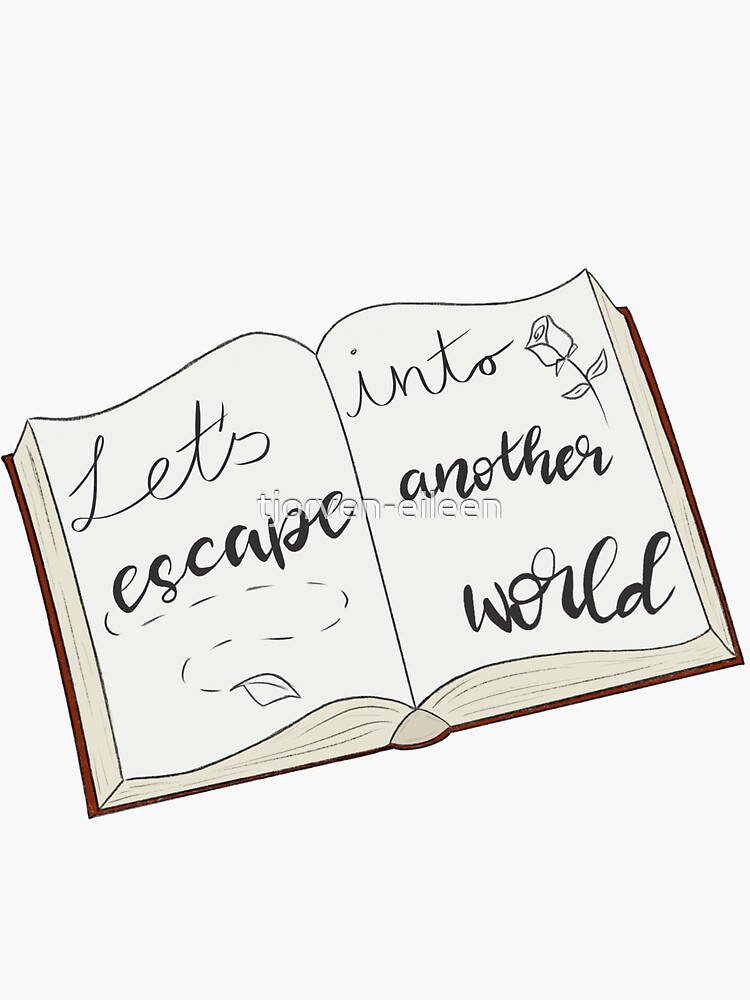 Let's
escape
into
another
world
tjorven-eileen